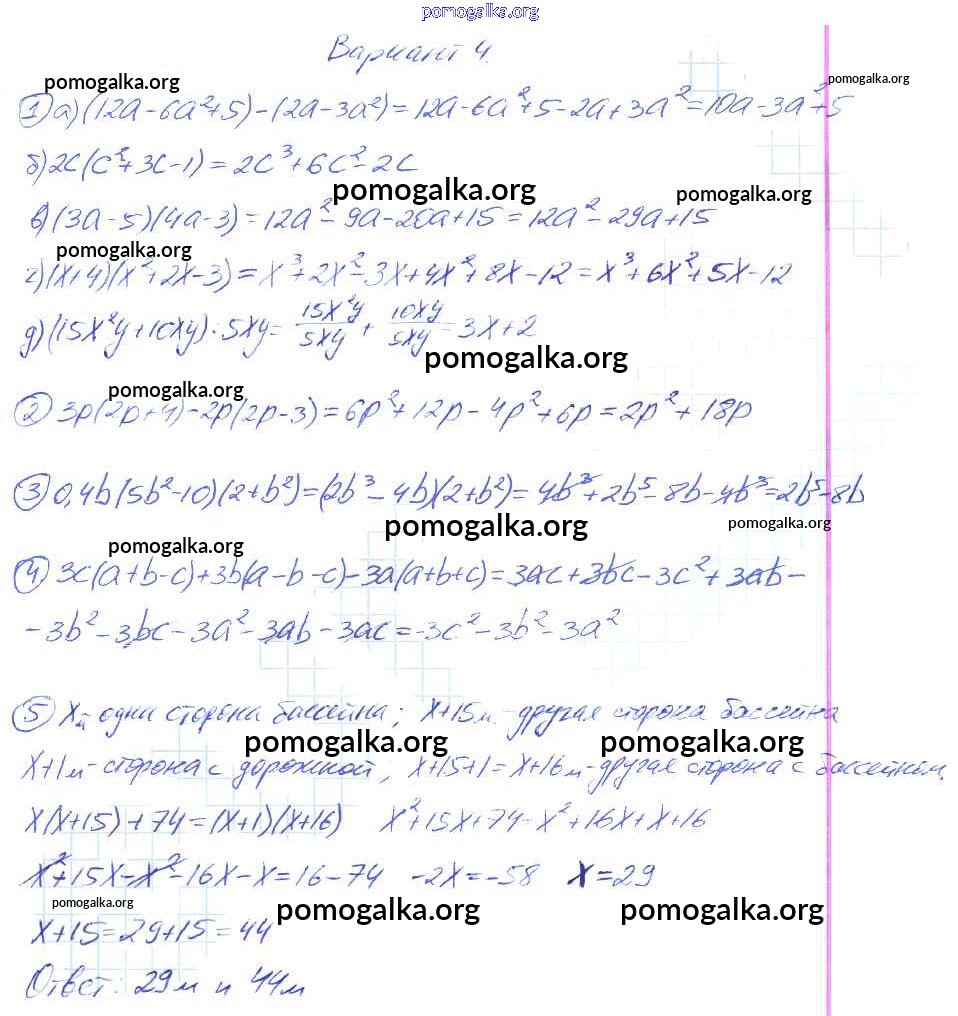 pomogalka.org
Вариант 4.
pomogalka.org pomogalka.org
1) а) (12a-6a²+5)-(2a-3a²)=12a-6a²+5-2a+3a²=10a-3a²+5
б) 2c(c²+3c-1)=2c³+6c²-2c
pomogalka.org pomogalka.org
в) (3a-5)(4a-3)=12a²-9a-20a+15=12a²-29a+15
pomogalka.org
г) (x+4)(x²+2x-3)=x³+2x²-3x+4x²+8x-12=x³+6x²+5x-12
д) (15x²y+10xy):5xy=15x²y/5xy+10xy/5xy=3x+2
pomogalka.org
pomogalka.org
2) 3p(2p+4)-2p(2p-3)=6p²+12p-4p²+6p=2p²+18p
3) 0,4b(5b²-10)(2+b²)=(2b³-4b)(2+b²)=4b³+2b⁵-8b-4b³=2b⁵-8b
pomogalka.org pomogalka.org
pomogalka.org
4) 3c(a+b-c)+3b(a-b-c)-3a(a+b+c)=3ac+3bc-3c²+3ab-
-3b²-3bc-3a²-3ab-3ac=-3c²-3b²-3a²
5) x м-одна сторона бассейна; x+15м.-другая сторона бассейна
pomogalka.org pomogalka.org
x+1м-сторона с дорожкой; x+15+1=x+16м-другая сторона с бассейном.
x(x+15)+74=(x+1)(x+16) x²+15x+74=x²+16x+x+16
x²+15x-x²-16x-x=16-74 -2x=-58 x=29
pomogalka.org pomogalka.org pomogalka.org
x+15=29+15=44
Ответ: 29м и 44м